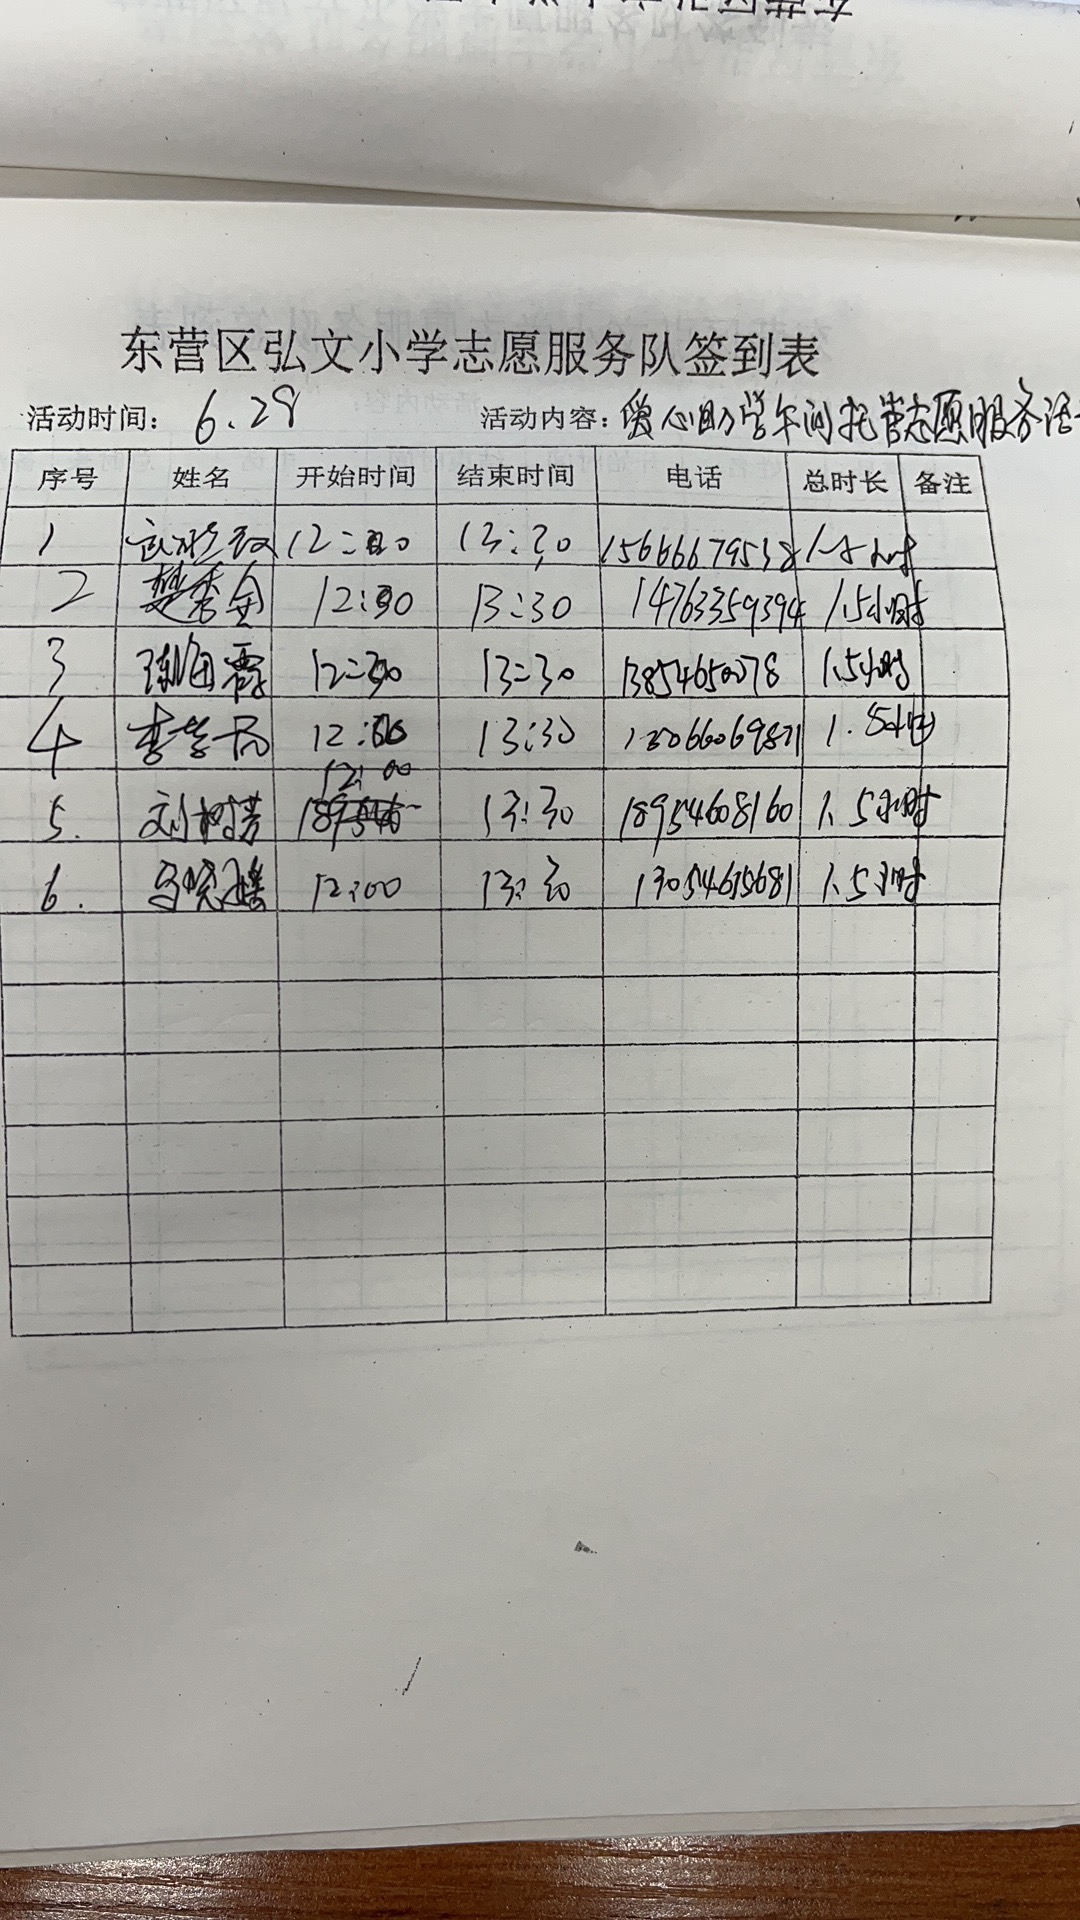 东营区弘文小学志愿服务队签到表
活动时间： 6.28 活动内容：爱心助学午间托管志愿服务活
序号 姓名 开始时间 结束时间 电话 总时长 备注
1 13:30 15666679538 1.5小时
2 楚秀金 12:00 13:30 14763359394 1.5小时
3 霞 12:00 13:30 13854650078 1.5小时
4 12:00 13:30 1.5小时
12:00
5. 刘树芳 13:30 18954608160 1.5小时
6. 马晓瑶 12:00 13:30 13054615681 1.5小时